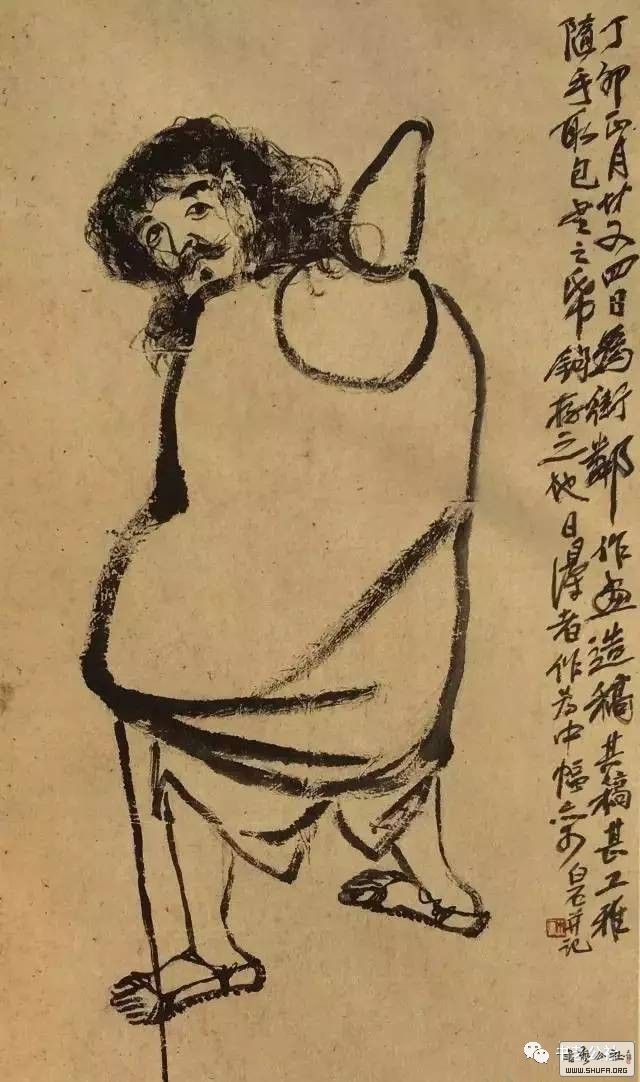 丁卯五月廿又四日為街鄰作畫造稿其稿甚工雅
隨手取包書之帋鉤存之他日得者作為中幅亦可 白石并記
書藝公社
WWW.SHUFA.ORG